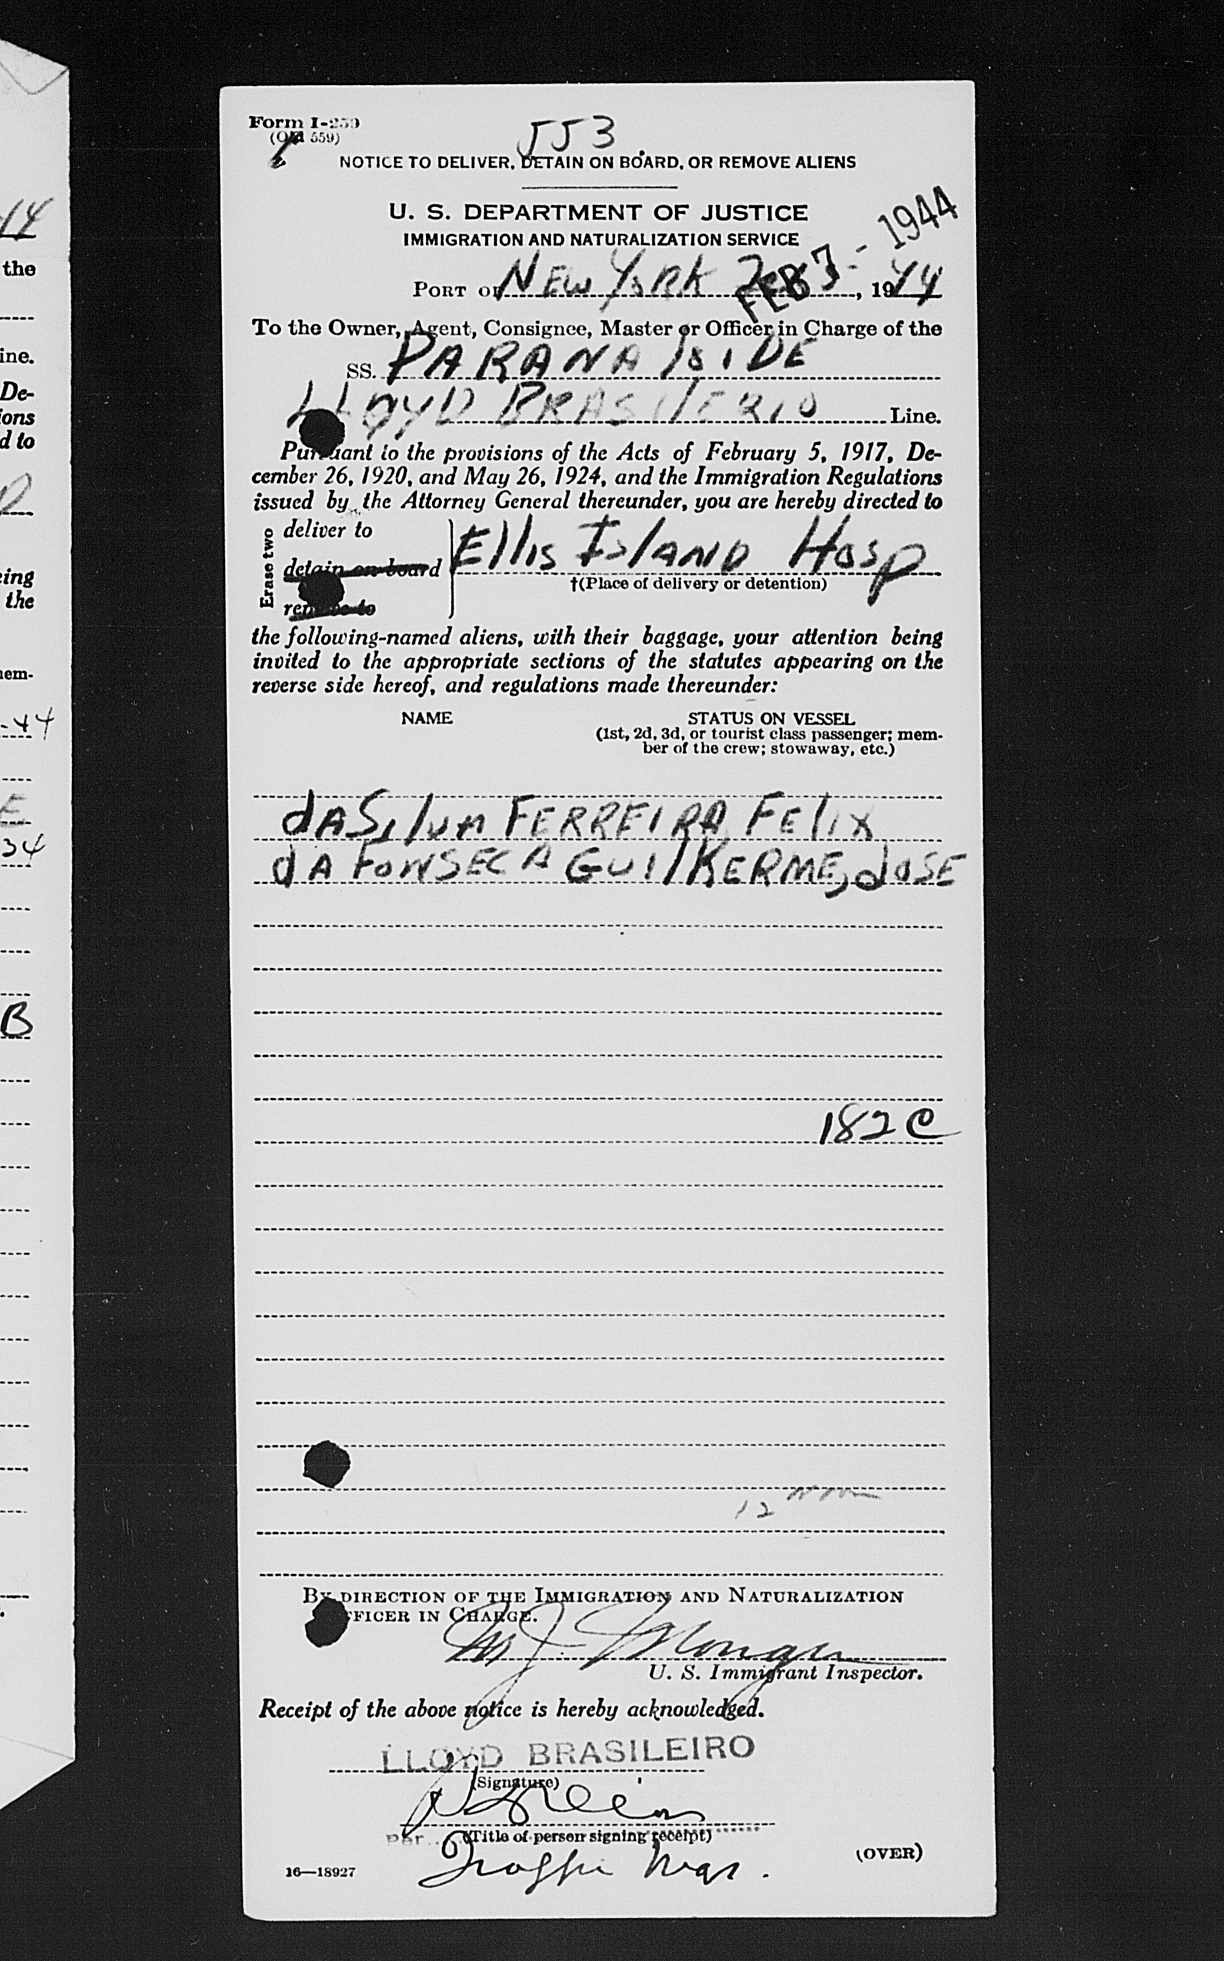 14
the
ine.
De-
ions
d to
ing
the
nem-
-44
E
34
B
Form I-259
(Old 559)
553
NOTICE TO DELIVER, DETAIN ON BOARD, OR REMOVE ALIENS
U. S. DEPARTMENT OF JUSTICE
IMMIGRATION AND NATURALIZATION SERVICE
FEB 7 - 1944
PORT OF NEW YORK, 1944
To the Owner, Agent, Consignee, Master or Officer in Charge of the
SS. PARANA
LLOYD BRASILERIO Line.
Pursuant to the provisions of the Acts of February 5, 1917, De-
cember 26, 1920, and May 26, 1924, and the Immigration Regulations
issued by the Attorney General thereunder, you are hereby directed to
Erase two
deliver to
detain on board
remove to
Ellis Island Hosp
†(Place of delivery or detention)
the following-named aliens, with their baggage, your attention being
invited to the appropriate sections of the statutes appearing on the
reverse side hereof, and regulations made thereunder:
NAME STATUS ON VESSEL
(1st, 2d, 3d, or tourist class passenger; mem-
ber of the crew; stowaway, etc.)
dA SilvA FERREIRA, FELIX
dA FONSECA GUILHERME, JOSE
182 C
12
BY DIRECTION OF THE IMMIGRATION AND NATURALIZATION
OFFICER IN CHARGE.
U. S. Immigrant Inspector.
Receipt of the above notice is hereby acknowledged.
LLOYD BRASILEIRO
(Signature)
Per
(Title of person signing receipt)
Traffic Mgr.
16—18927
(OVER)